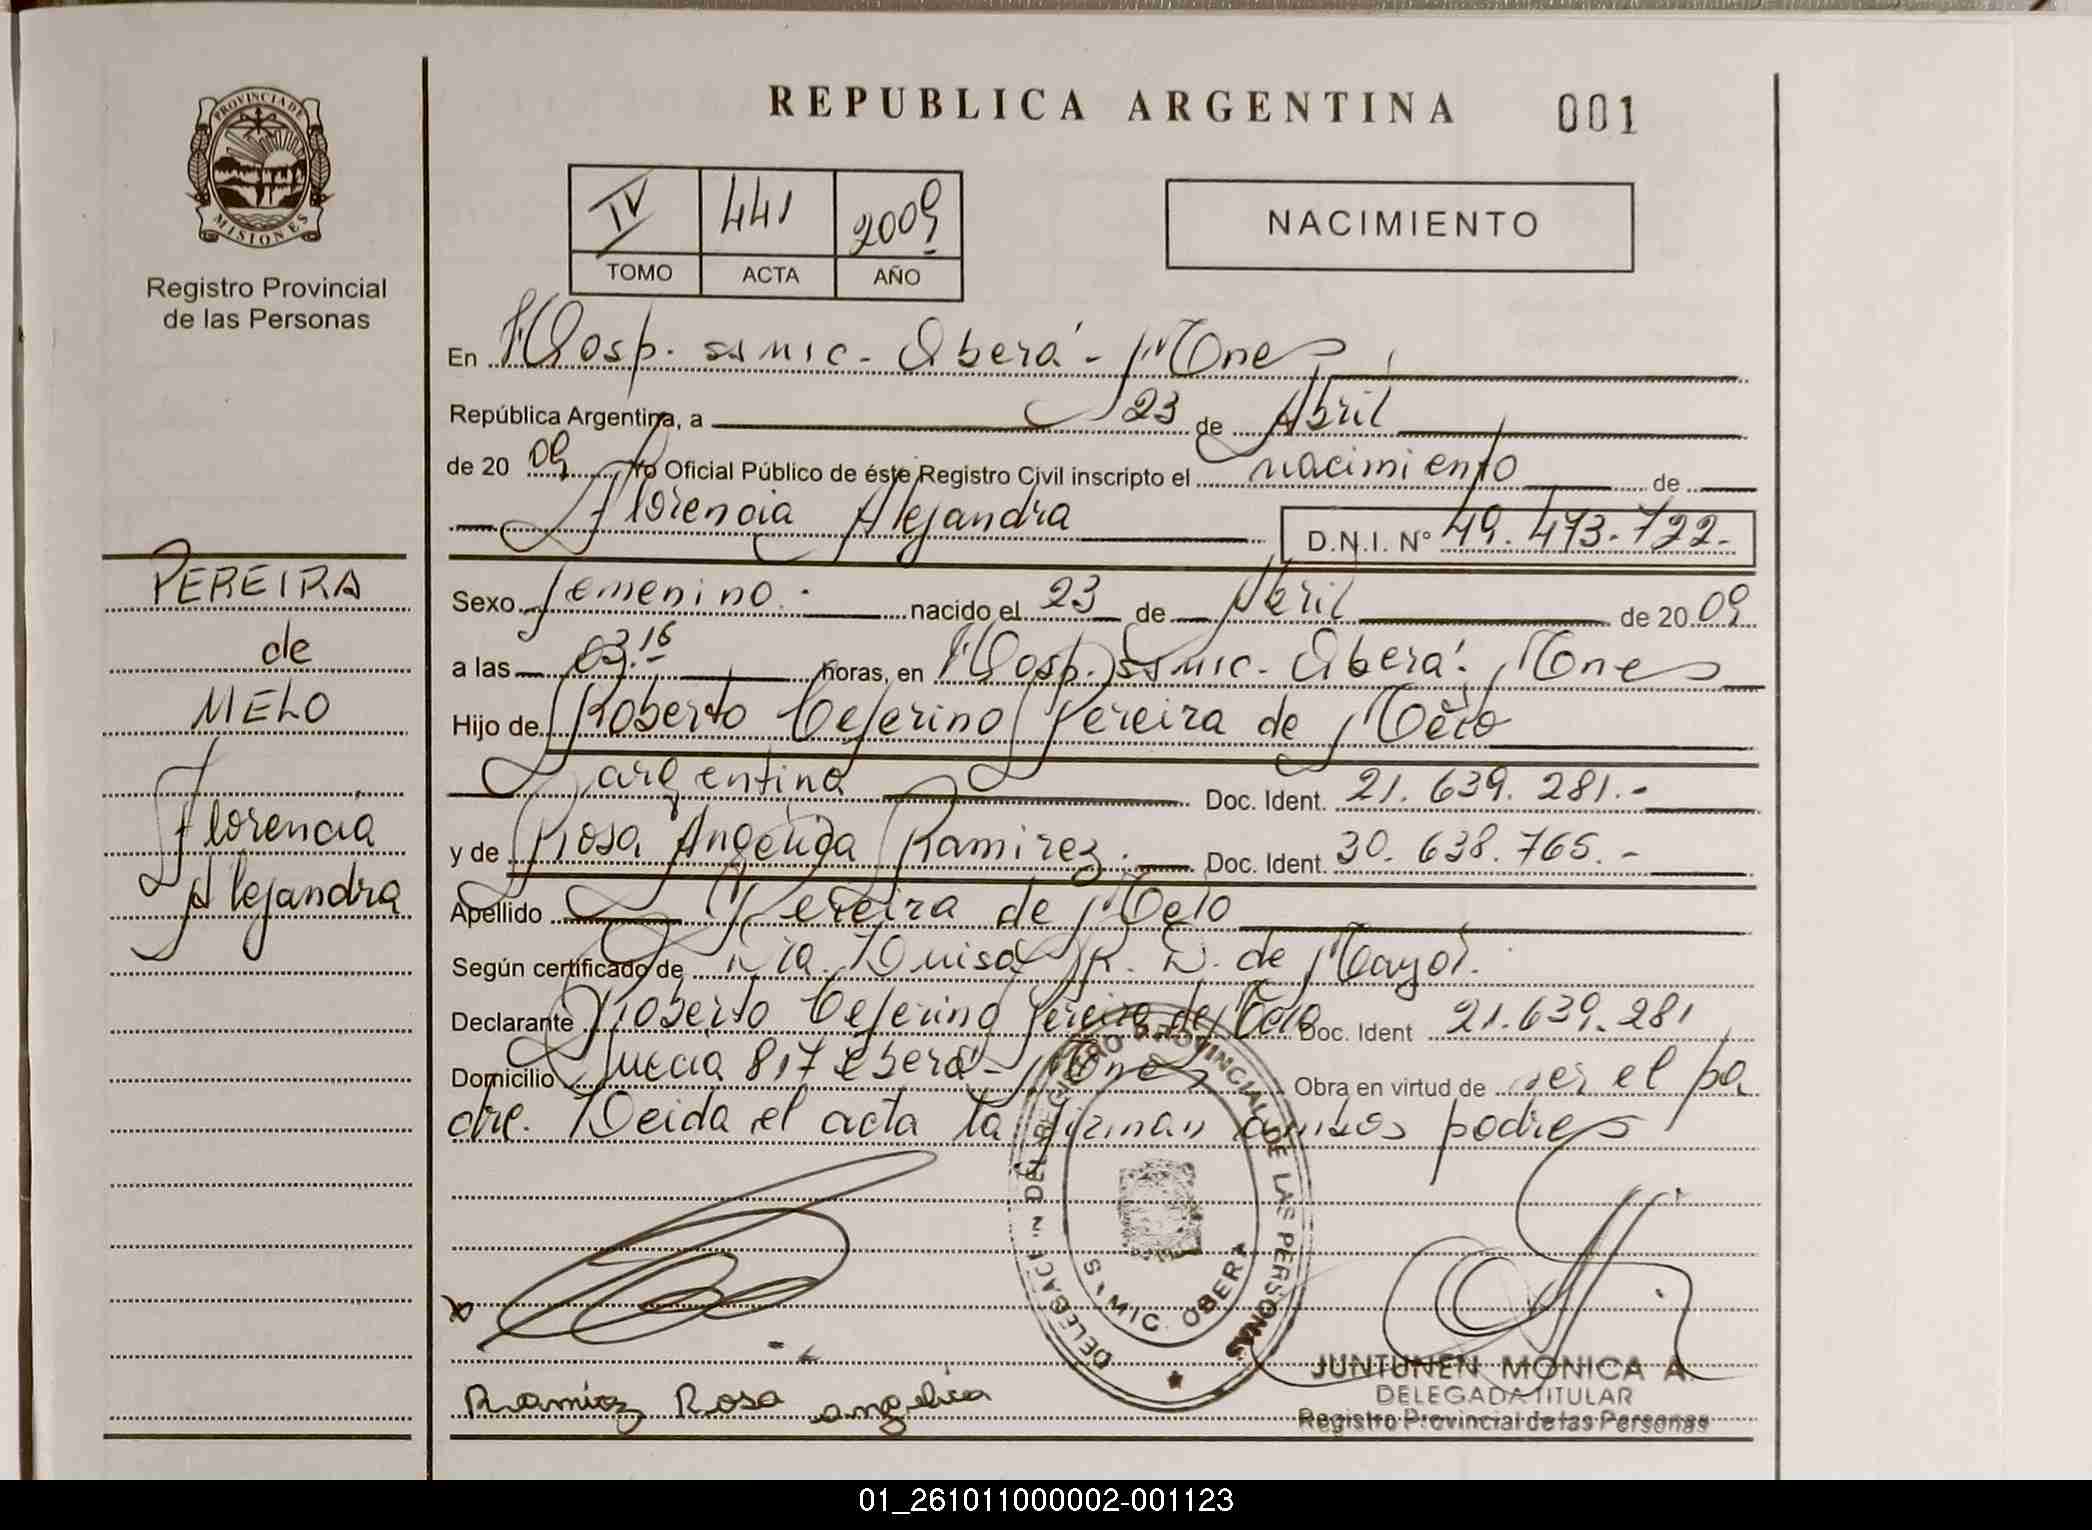 PROVINCIA DE
MISIONES
Registro Provincial
de las Personas
PEREIRA
de
MELO
Florencia
Alejandra
REPUBLICA ARGENTINA 001
IV 441 2009
TOMO ACTA AÑO
NACIMIENTO
En Hosp. ssmic - Oberá - Mones
República Argentina, a 23 de Abril
de 20 09 Yo Oficial Público de éste Registro Civil inscripto el nacimiento de
Florencia Alejandra D.N.I. N° 49.473.722.-
Sexo femenino.- nacido el 23 de Abril de 20 09
a las 03.16 horas, en Hosp. ssmic - Oberá - Mones
Hijo de Roberto Ceferino Pereira de Melo
argentino Doc. Ident. 21.639.281.-
y de Rosa Angelica Ramirez.- Doc. Ident. 30.638.765.-
Apellido Pereira de Melo
Según certificado de Dra. Luisa R. D. de Mayol.
Declarante Roberto Ceferino Pereira de Melo Doc. Ident 21.639.281
Domicilio Suecia 817 Oberá - Mones Obra en virtud de ser el pa
dre. Leida el acta la firman ambos padres
DELEGACIÓN DEL REGISTRO PROVINCIAL DE LAS PERSONAS
OBERA
Ramirez Rosa angelica
JUNTUNEN MONICA A.
DELEGADA TITULAR
Registro Provincial de las Personas
01_261011000002-001123